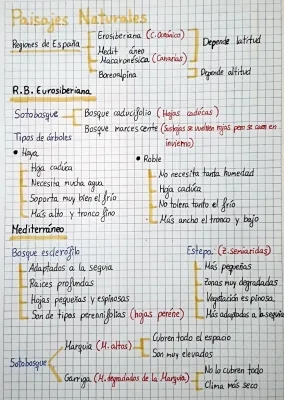 Paisajes Naturales
Regiones de España
Erosiberiana (C. Oceánico)
Medit áneo
Macaronésica (Canarias)
Boreoalpina
Depende latitud
Depende altitud
R.B. Eurosiberiana
Sotobosque
Bosque caducifolio (Hojas caducas)
Bosque marcescente (Sus hojas se vuelven rojas pero se caen en
invierno)
Tipos de árboles
• Haya
Hoja caduca
Necesita mucha agua
Soporta muy bien el frío
Más alto y tronco fino
• Roble
No necesita tanta humedad
Hoja caduca
No tolera tanto el frío
Más ancho el tronco y bajo
Mediterráneo
Bosque esclerófilo
Adaptados a la sequía
Raices profundas
Hojas pequeñas y espinosas
Son de tipos perennifolias (hojas perene)
Estepa (Z. semiaridas)
Más pequeñas
Zonas muy degradadas
Vegetación espinosa
Más adaptados a la sequía
Sotobosque
Marquia (M. altos)
Cubren todo el espacio
Son muy elevados
Garriga (M. degradados de la Marquia)
No lo cubren todo
Clima más seco